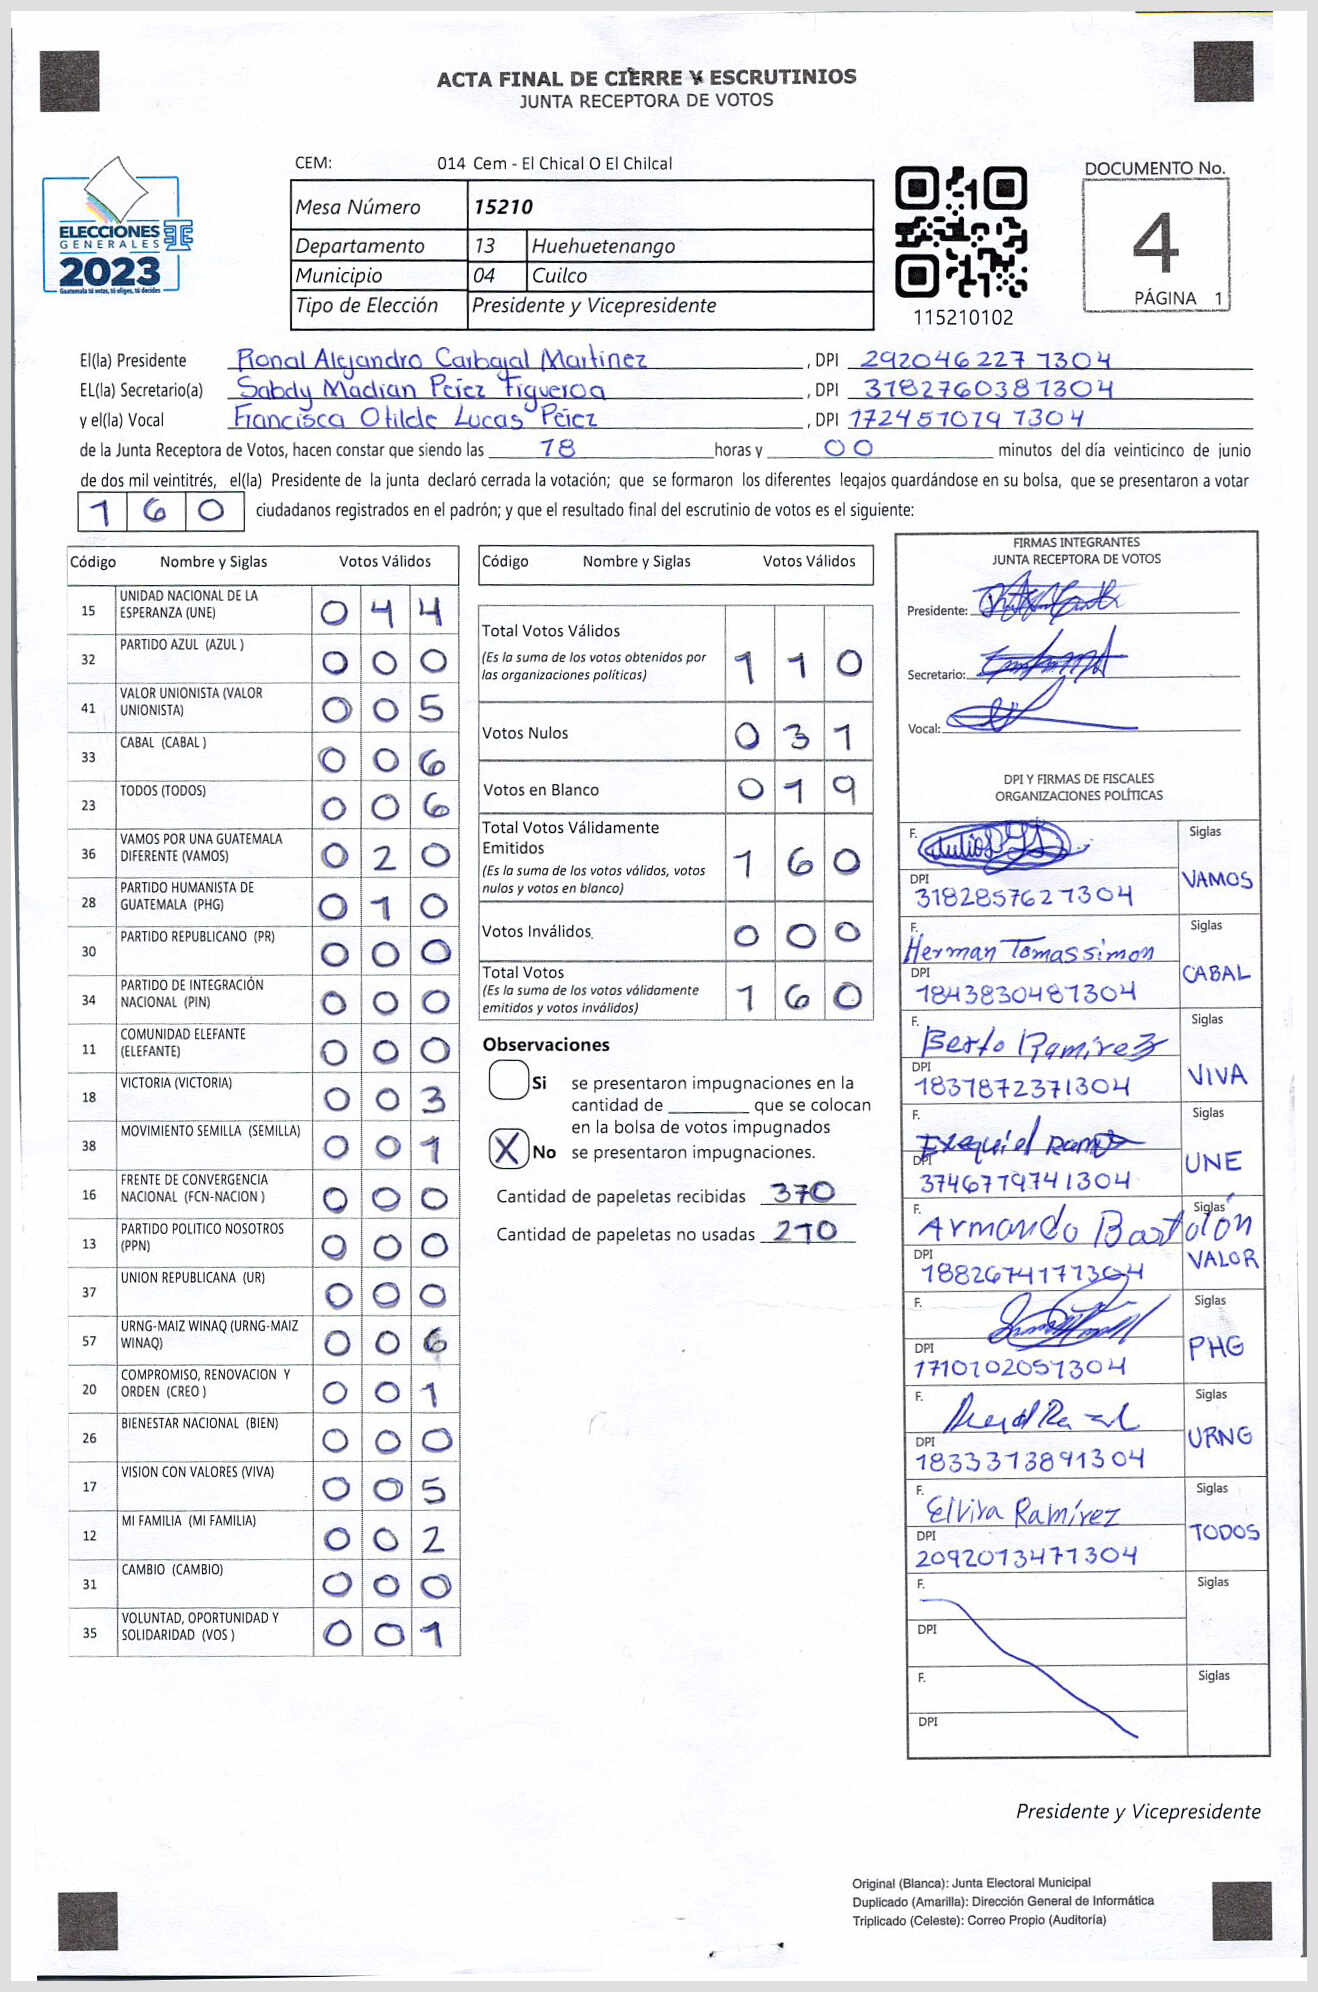 ACTA FINAL DE CIERRE Y ESCRUTINIOS
JUNTA RECEPTORA DE VOTOS
ELECCIONES
GENERALES
2023
Guatemala tú votas, tú eliges, tú decides
CEM: 014 Cem - El Chical O El Chilcal
Mesa Número 15210
Departamento 13 Huehuetenango
Municipio 04 Cuilco
Tipo de Elección Presidente y Vicepresidente
115210102
DOCUMENTO No.
4
PÁGINA 1
El(la) Presidente Ronal Alejandro Carbajal Martínez, DPI 292046227 1304
EL(la) Secretario(a) Sabdy Madian Pérez Figueroa, DPI 3182760381304
y el(la) Vocal Francisca Otilde Lucas Pérez, DPI 172451079 1304
de la Junta Receptora de Votos, hacen constar que siendo las 18 horas y 00 minutos del día veinticinco de junio
de dos mil veintitrés, el(la) Presidente de la junta declaró cerrada la votación; que se formaron los diferentes legajos guardándose en su bolsa, que se presentaron a votar
1 6 0 ciudadanos registrados en el padrón; y que el resultado final del escrutinio de votos es el siguiente:
Código Nombre y Siglas Votos Válidos
15 UNIDAD NACIONAL DE LA ESPERANZA (UNE) 0 4 4
32 PARTIDO AZUL (AZUL ) 0 0 0
41 VALOR UNIONISTA (VALOR UNIONISTA) 0 0 5
33 CABAL (CABAL ) 0 0 6
23 TODOS (TODOS) 0 0 6
36 VAMOS POR UNA GUATEMALA DIFERENTE (VAMOS) 0 2 0
28 PARTIDO HUMANISTA DE GUATEMALA (PHG) 0 1 0
30 PARTIDO REPUBLICANO (PR) 0 0 0
34 PARTIDO DE INTEGRACIÓN NACIONAL (PIN) 0 0 0
11 COMUNIDAD ELEFANTE (ELEFANTE) 0 0 0
18 VICTORIA (VICTORIA) 0 0 3
38 MOVIMIENTO SEMILLA (SEMILLA) 0 0 1
16 FRENTE DE CONVERGENCIA NACIONAL (FCN-NACION ) 0 0 0
13 PARTIDO POLITICO NOSOTROS (PPN) 0 0 0
37 UNION REPUBLICANA (UR) 0 0 0
57 URNG-MAIZ WINAQ (URNG-MAIZ WINAQ) 0 0 6
20 COMPROMISO, RENOVACION Y ORDEN (CREO ) 0 0 1
26 BIENESTAR NACIONAL (BIEN) 0 0 0
17 VISION CON VALORES (VIVA) 0 0 5
12 MI FAMILIA (MI FAMILIA) 0 0 2
31 CAMBIO (CAMBIO) 0 0 0
35 VOLUNTAD, OPORTUNIDAD Y SOLIDARIDAD (VOS ) 0 0 1
Código Nombre y Siglas Votos Válidos
Total Votos Válidos 1 1 0
(Es la suma de los votos obtenidos por las organizaciones políticas)
Votos Nulos 0 3 1
Votos en Blanco 0 1 9
Total Votos Válidamente Emitidos 1 6 0
(Es la suma de los votos válidos, votos nulos y votos en blanco)
Votos Inválidos 0 0 0
Total Votos 1 6 0
(Es la suma de los votos válidamente emitidos y votos inválidos)
Observaciones
Si se presentaron impugnaciones en la
cantidad de ________ que se colocan
en la bolsa de votos impugnados
X No se presentaron impugnaciones.
Cantidad de papeletas recibidas 370
Cantidad de papeletas no usadas 210
FIRMAS INTEGRANTES
JUNTA RECEPTORA DE VOTOS
Presidente:
Secretario:
Vocal:
DPI Y FIRMAS DE FISCALES
ORGANIZACIONES POLÍTICAS
F. Siglas
DPI VAMOS
3182857627304
F. Herman Tomas simon Siglas
DPI CABAL
1843830481304
F. Berto Ramírez Siglas
DPI VIVA
1831872371304
F. Exequiel Siglas
DPI UNE
3746779741304
F. Armando Bartolón Siglas
DPI VALOR
1882674171304
F. Siglas
DPI PHG
1710702051304
F. Siglas
DPI URNG
1833313891304
F. Elvira Ramírez Siglas
DPI TODOS
2092013471304
F. Siglas
DPI
F. Siglas
DPI
Presidente y Vicepresidente
Original (Blanca): Junta Electoral Municipal
Duplicado (Amarilla): Dirección General de Informática
Triplicado (Celeste): Correo Propio (Auditoría)